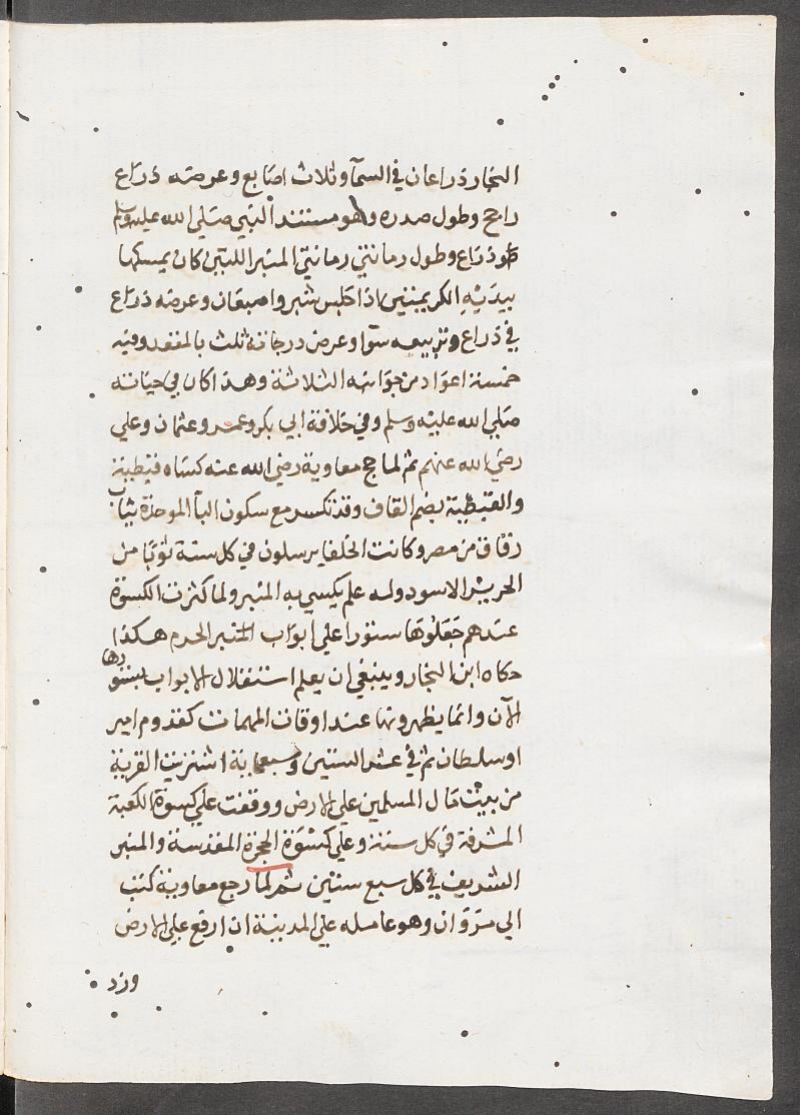 النجار ذراعان في السمآ وثلاث اصابع وعرضه ذراع
راجح وطول صدره وهو مستند النبي صلي الله عليه وسلم
ذراع وطول رمانتي رمانتي المنبر اللتين كان يمسكها
بيديه الكريمتين اذا جلس شبر واصبعان وعرضه ذراع
في ذراع وتربيعه سوآ وعرض درجاته ثلث بالمقعد وفيه
خمسة اعواد من جوانبه الثلاثة وهذا كان في حياته
صلي الله عليه وسلم وفي خلافة ابي بكر وعمر وعثمان وعلي
رضي الله عنهم ثم لما حج معاوية رضي الله عنه كساه قبطية
والقبطية بضم القاف وقد تكسر مع سكون البآ الموحدة ثياب
رقاق من مصر وكانت الخلفا يرسلون في كل سنة ثوبا من
الحرير الاسود وله علم يكسي به المنبر ولما كثرت الكسوة
عندهم جعلوها ستورا علي ابواب الحرم هكذا
حكاه ابن النجار وينبغي ان يعلم استقلال الابواب بستورها
الآن وانما يظهرونها عند اوقات المهمات كقدوم امير
او سلطان ثم في عشر الستين وسبعماية اشتريت القرية
من بيت مال المسلمين علي الارض ووقفت علي كسوة الكعبة
المشرفة في كل سنة وعلي كسوة الحجرة المقدسة والمنبر
الشريف في كل سبع سنين ثم لما رجع معاوية كتب
الي مروان وهو عامله علي المدينة ان ارفع علي الارض
وزد